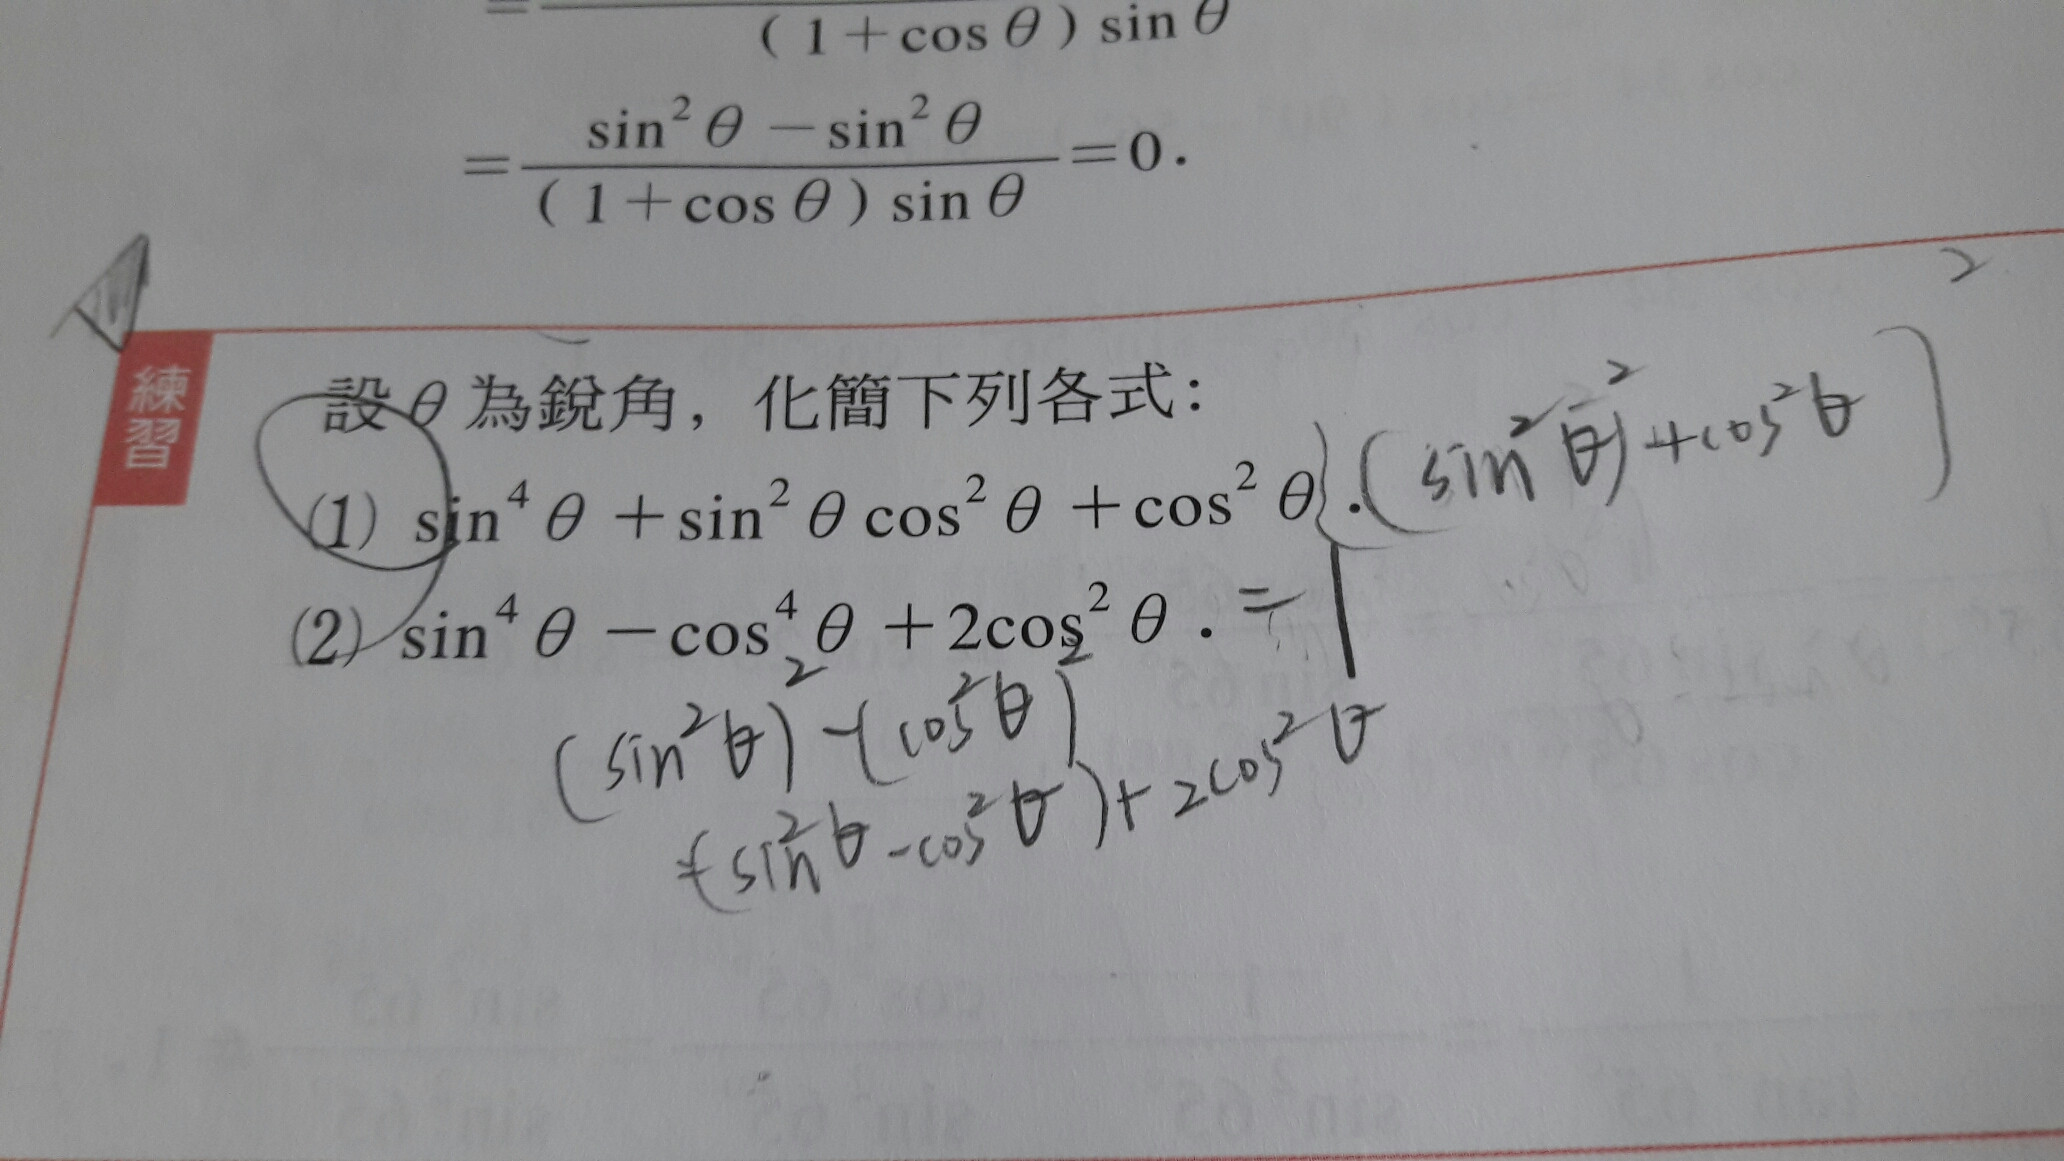 (1+cosθ) sinθ
= sin²θ－sin²θ / (1+cosθ) sinθ =0.
練習
設θ為銳角，化簡下列各式：
(1) sin⁴θ+sin²θcos²θ+cos²θ. (sin²θ)²+cos²θ
(2) sin⁴θ－cos⁴θ+2cos²θ. =1
(sin²θ)²-(cos²θ)²
(sin²θ-cos²θ)+2cos²θ